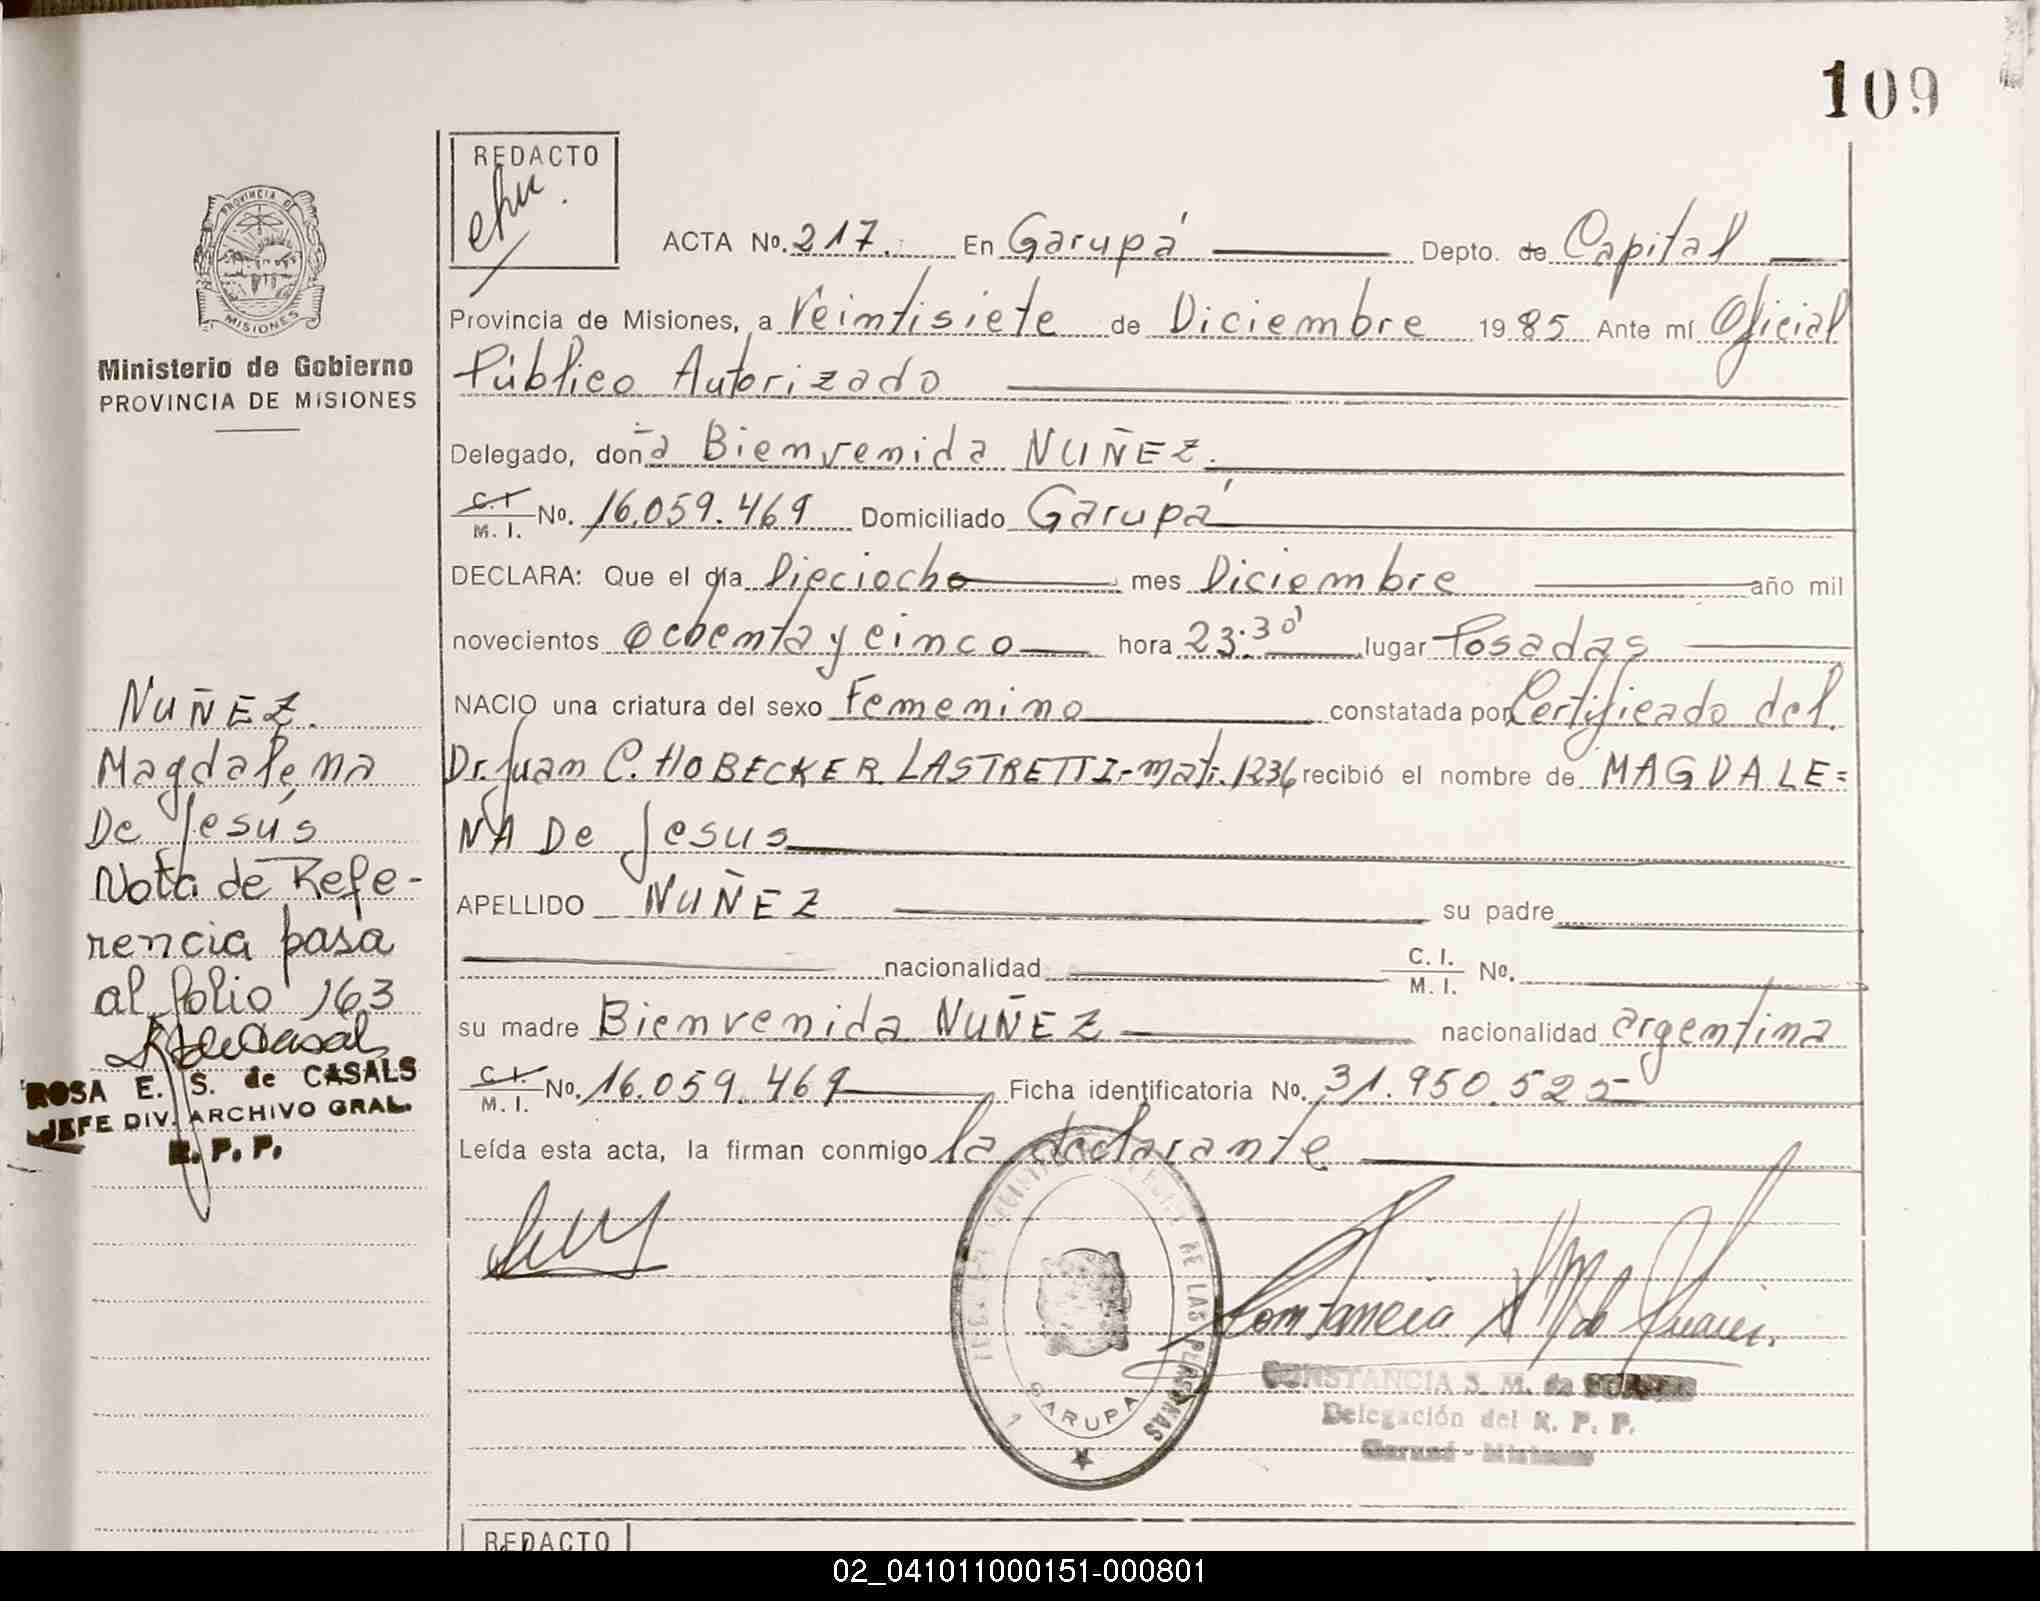 109
REDACTO
ACTA No. 217. En Garupá Depto. de Capital
PROVINCIA DE
MISIONES
Provincia de Misiones, a Veintisiete de Diciembre 1985 Ante mí Oficial
Ministerio de Gobierno
PROVINCIA DE MISIONES
Público Autorizado
Delegado, doña Bienvenida NUÑEZ.
C.I. M. I. No. 16.059.469 Domiciliado Garupá
DECLARA: Que el día Dieciocho mes Diciembre año mil
novecientos ochenta y cinco hora 23:30 lugar Posadas
NACIO una criatura del sexo Femenino constatada por Certificado del
Dr. Juan C. HOBECKER LASTRETTI-Mat. 1236 recibió el nombre de MAGDALE=
NA De Jesus
APELLIDO NUÑEZ su padre
nacionalidad C. I. M. I. No.
su madre Bienvenida NUÑEZ nacionalidad argentina
C.I. M. I. No. 16.059.469 Ficha identificatoria No. 31.950.525
Leída esta acta, la firman conmigo la declarante
NUÑEZ.
Magdalena
De Jesús
Nota de Refe-
rencia pasa
al folio 163
ROSA E. S. de CASALS
JEFE DIV. ARCHIVO GRAL.
R. P. P.
DE LAS PERSONAS
GARUPA
CONSTANCIA S. M. de
Delegación del R. P. P.
Garupá - Misiones
REDACTO
02_041011000151-000801